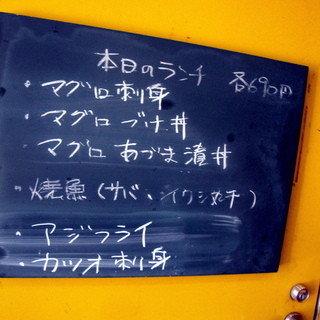 本日のランチ 各690円
・マグロ刺身
・マグロ づけ丼
マグロ あづま漬丼
・焼魚(サバ、イワシ丸干)
・アジフライ
・カツオ刺身